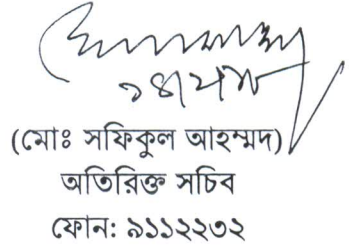 (মোঃ সফিকুল আহম্মদ)
অতিরিক্ত সচিব
ফোন: ৯১১২২৩২